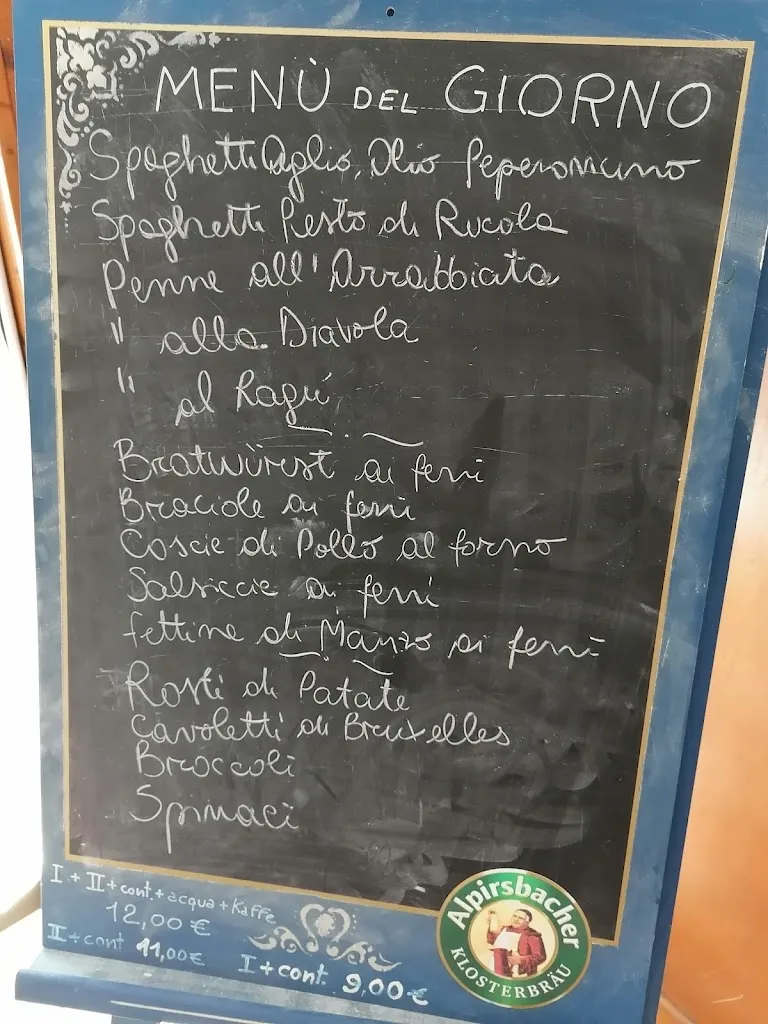 MENÙ DEL GIORNO
Spaghetti Aglio, Olio Peperoncino
Spaghetti Pesto di Rucola
Penne all'Arrabbiata
" alla Diavola
" al Ragù
Bratwürst ai ferri
Braciole ai ferri
Coscie di Pollo al forno
Salsiccie ai ferri
fettine di Manzo ai ferri
Rosti di Patate
Cavoletti di Bruxelles
Broccoli
Spinaci
I + II + cont. + acqua + Kaffe
12,00 €
II + cont 11,00 €
I + cont. 9,00 €
Alpirsbacher
KLOSTERBRÄU